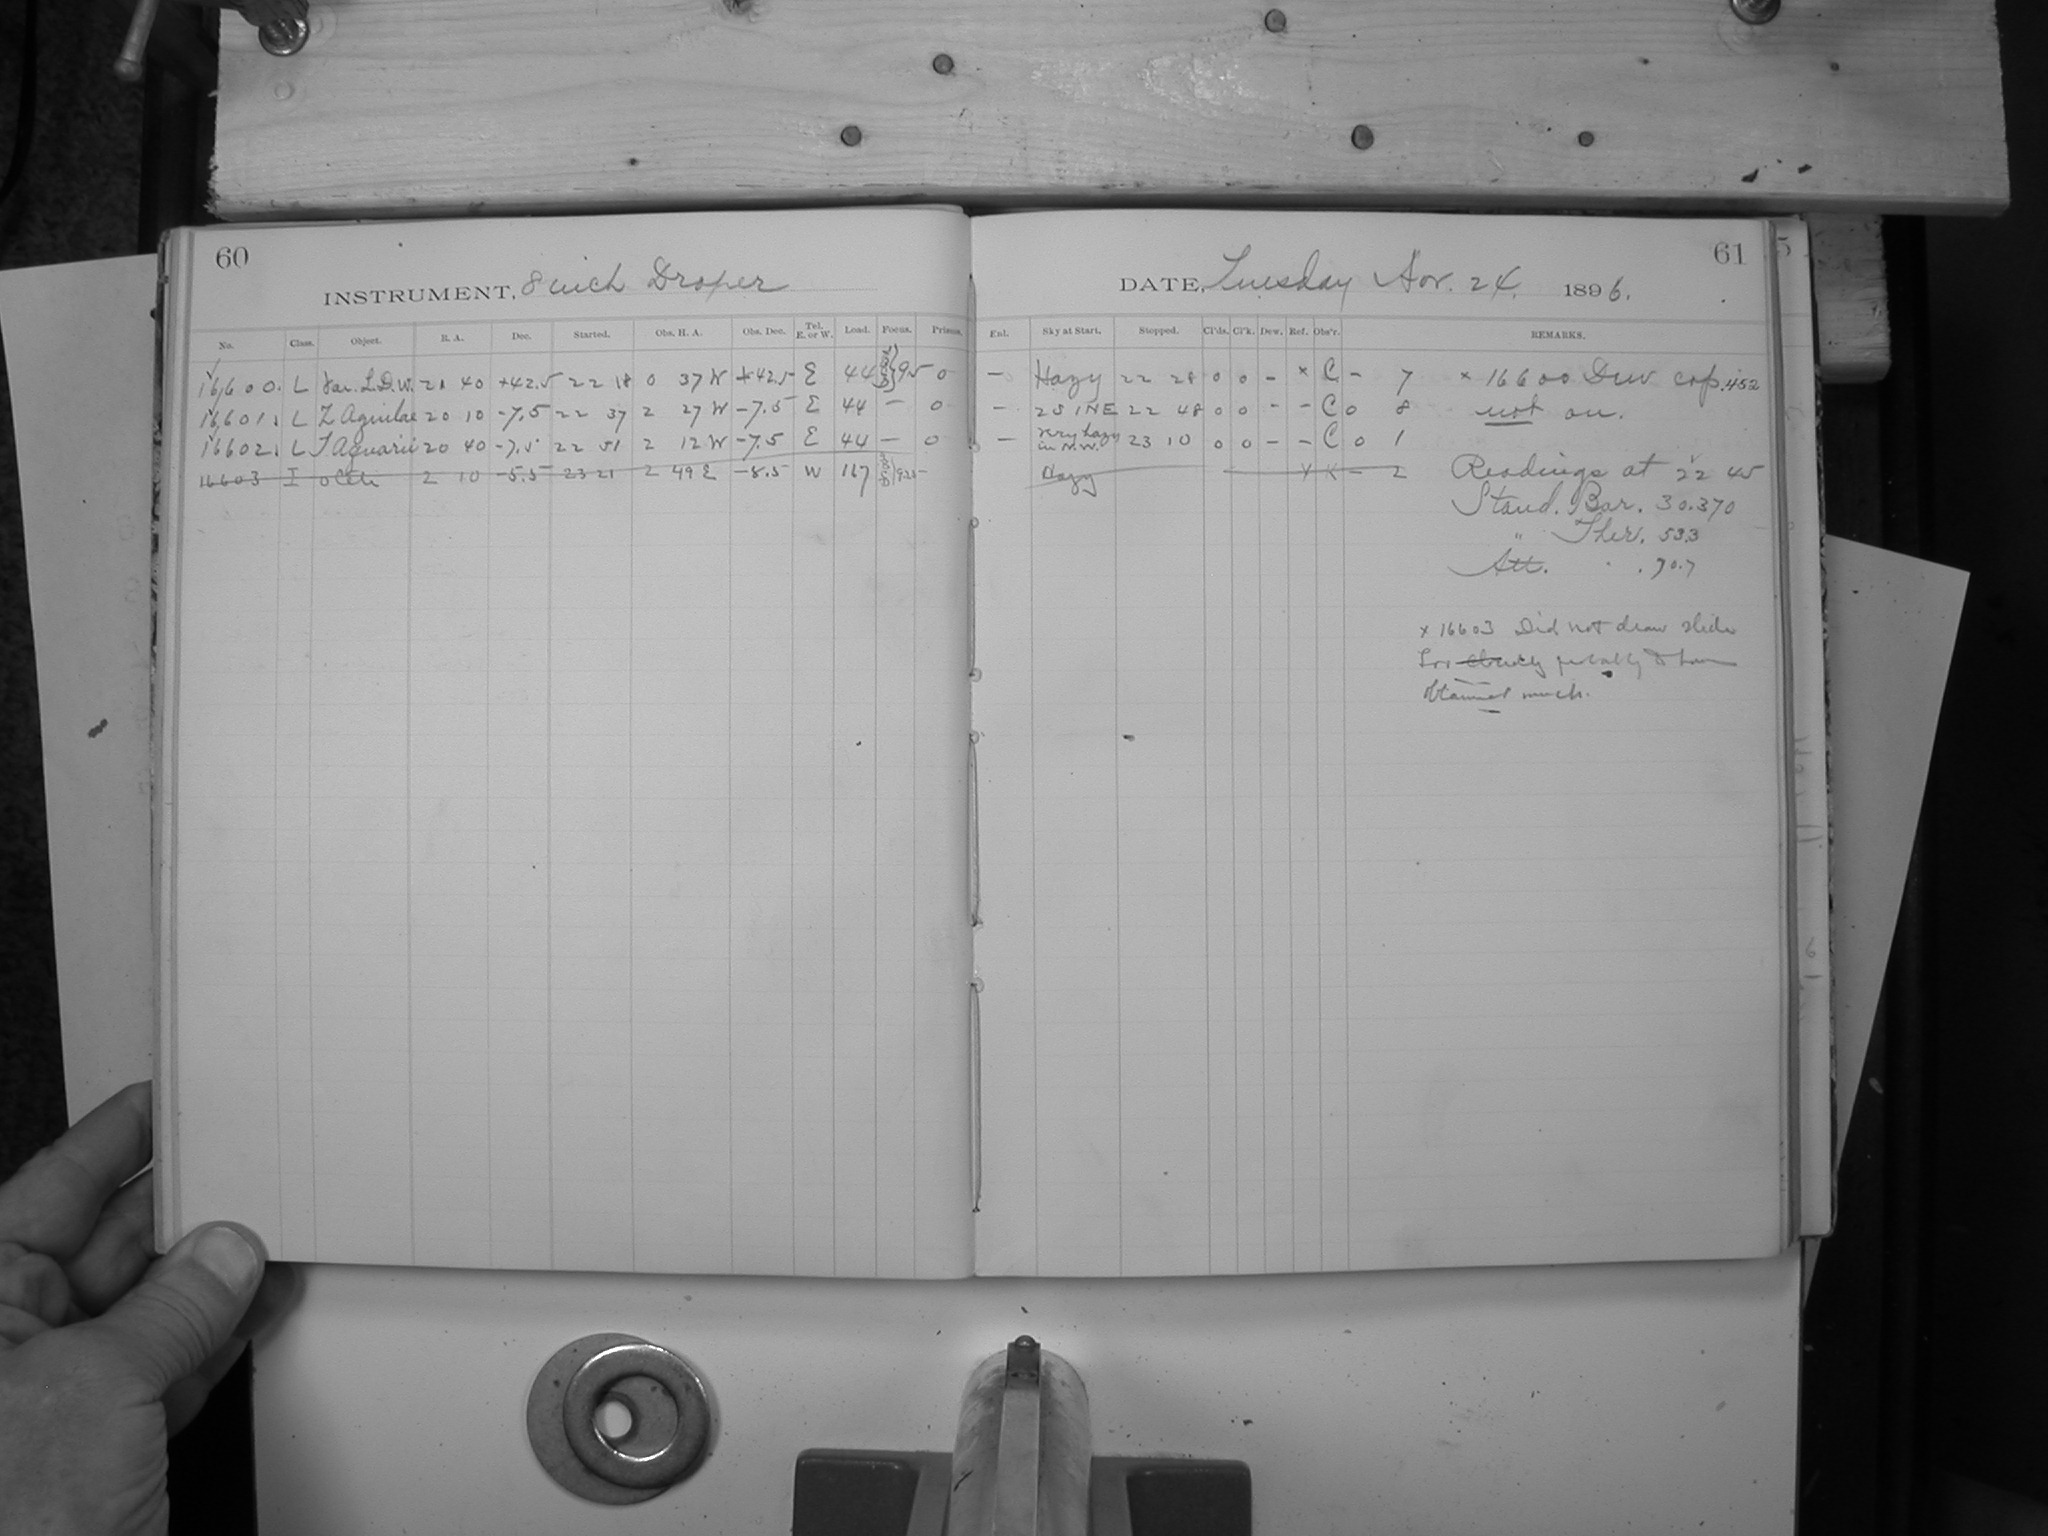 60
INSTRUMENT, 8 inch Draper
No. Class. Object. R. A. Dec. Started. Obs. H. A. Obs. Dec. Tel. E. or W. Load. Focus. Prisms.
16600. L Var. L.D.W. 21 40 +42.5 22 18 0 37 W +42.5 E 44 9.5 0
16601. L Z Aquilae 20 10 -7.5 22 37 2 27 W -7.5 E 44 - 0
16602. L T Aquarii 20 40 -7.5 22 51 2 12 W -7.5 E 44 - 0
16603 I o Ceti 2 10 -5.5 23 21 2 49 E -5.5 W 167 -
61
DATE, Tuesday Nov. 24. 1896.
Enl. Sky at Start. Stopped. Cl'ds. Cl'k. Dew. Ref. Obs'r. REMARKS.
- Hazy 22 28 0 0 - × C - 7 × 16600 Dew cap. 452
- 2S 1NE 22 48 0 0 - - C 0 8 not on.
- Very hazy in N.W. 23 10 0 0 - - C 0 1
Hazy × K - 2 Readings at 22 45
Stand. Bar. 30.370
" Ther. 53.3
Att. . . 70.7
× 16603 Did not draw slide
Too cloudy probably to have
obtained much.